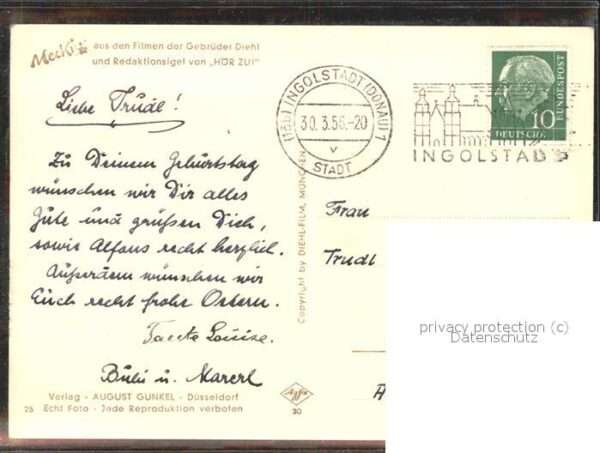 Mecki aus den Filmen der Gebrüder Diehl
und Redaktionsigel von „HÖR ZU!"
Liebe Trudl!
Zu Deinem Geburtstag
wünschen wir Dir alles
Gute und grüßen Dich,
sowie Alfons recht herzlich.
Außerdem wünschen wir
Euch recht frohe Ostern.
Tante Louise.
Bubi u. Marerl
Verlag - AUGUST GUNKEL - Düsseldorf
25 Echt Foto - Jede Reproduktion verboten
Copyright by DIEHL-FILM, MÜNCHEN
Agfa
30
(13b) INGOLSTADT (DONAU) 1
30.3.56.-20
v
STADT
INGOLSTADT
10
DEUTSCHE
BUNDESPOST
Frau
Trudl
privacy protection (c)
Datenschutz